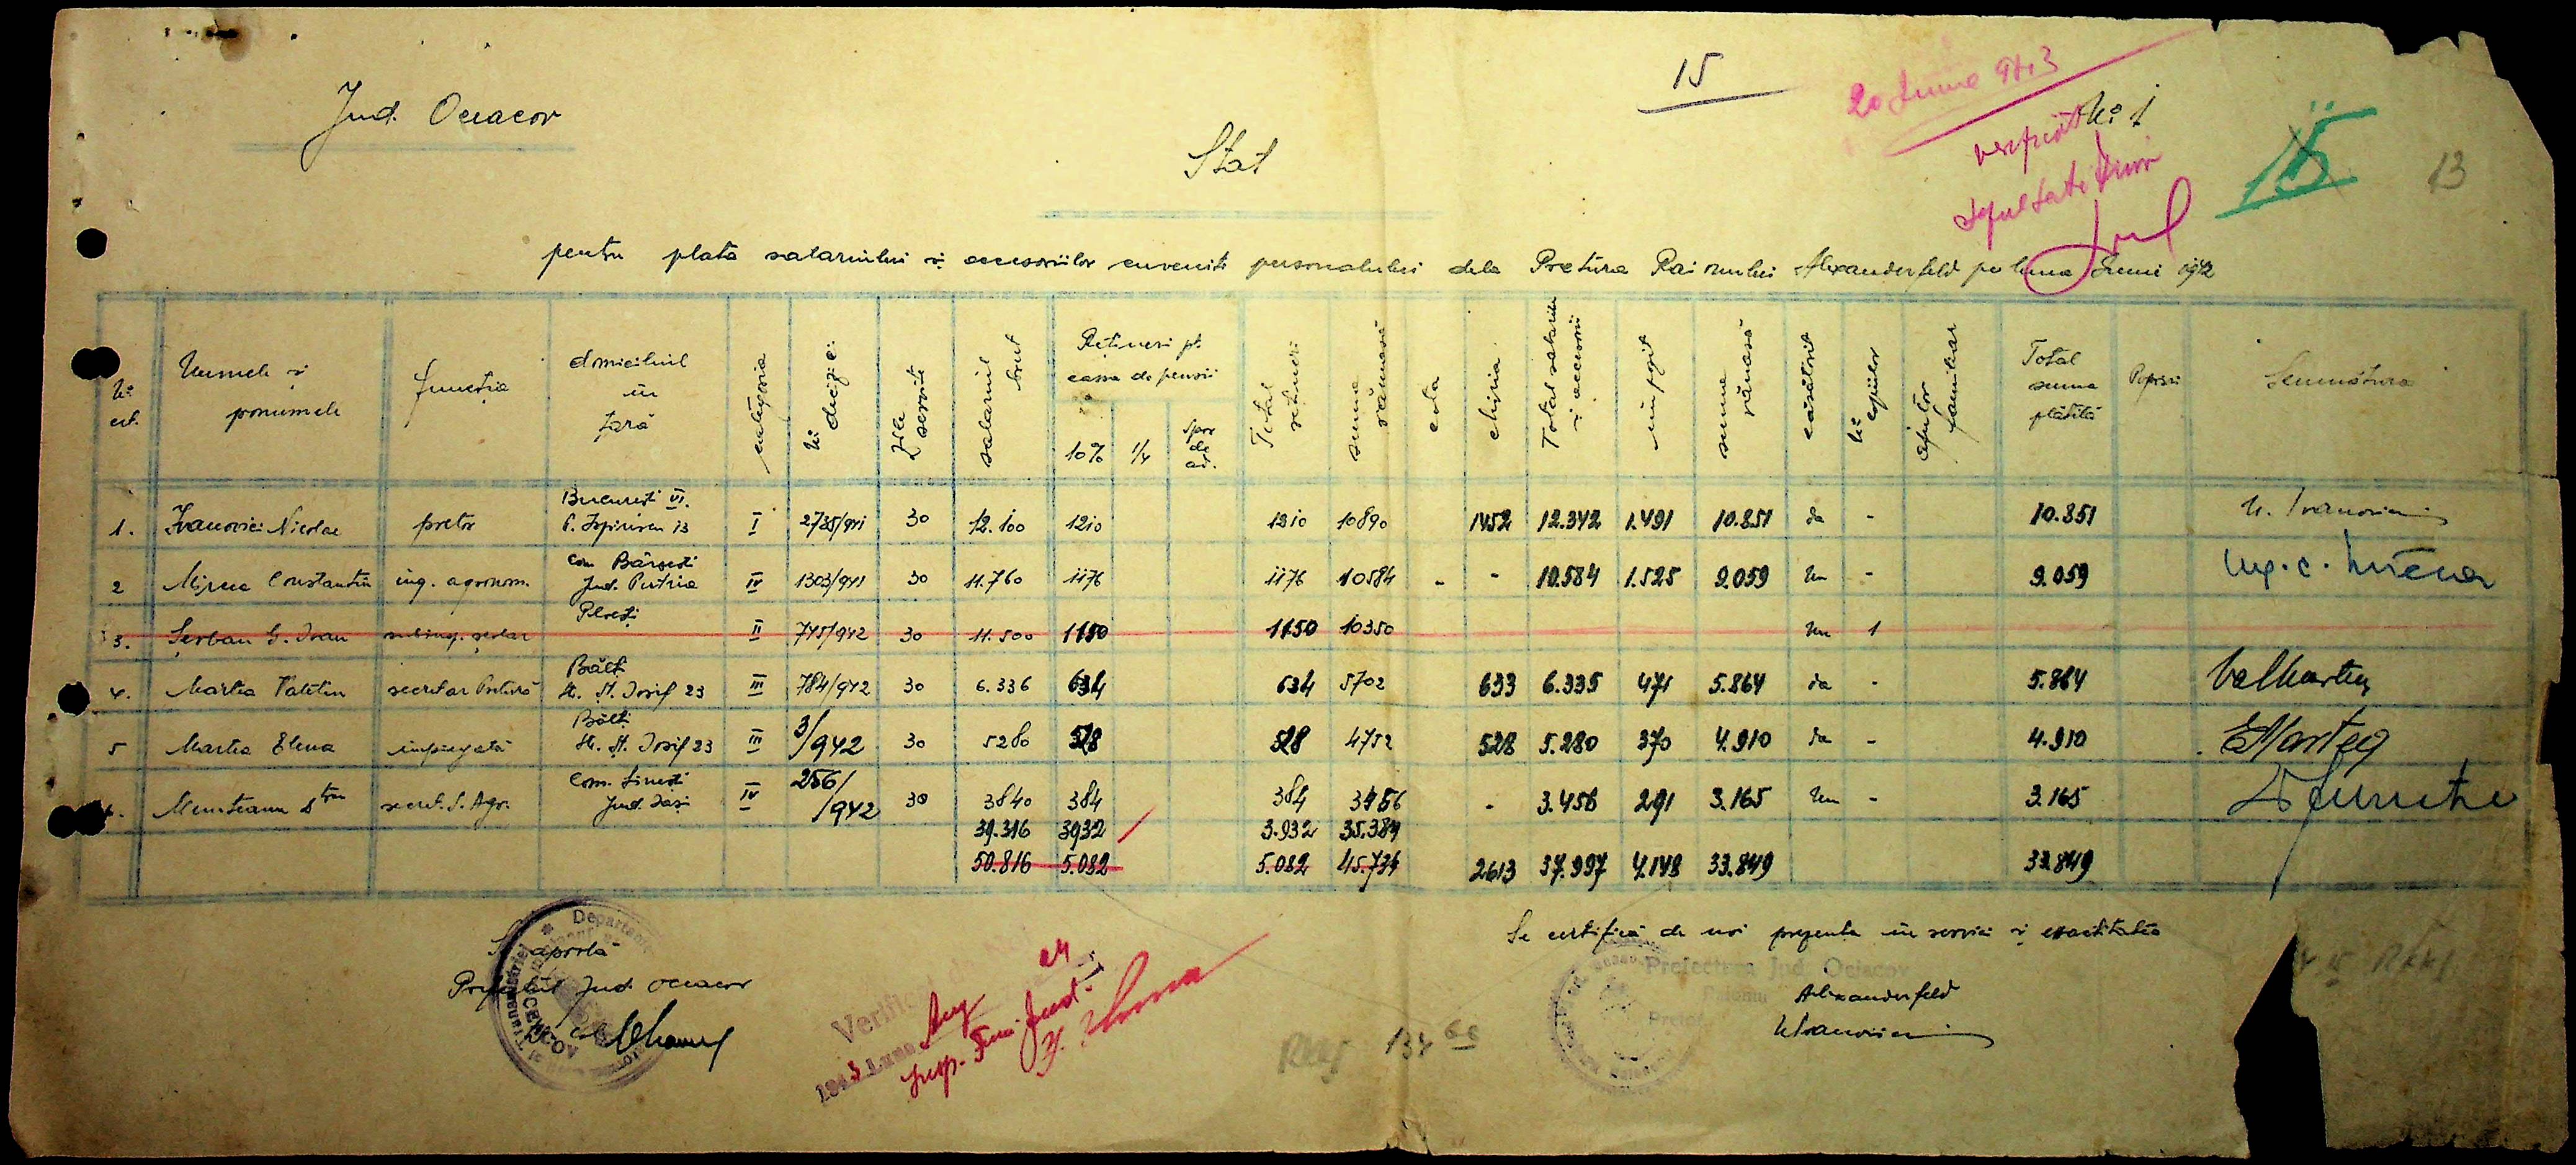 15
20 Iunie 943
Jud. Ociacov
No 1
verificat
15
13
Stat
pentru plata salariului și accesoriilor cuvenite personalului dela Pretura Raionului Alexanderfeld pe luna Iunie 1942
No crt. Numele și pronumele funcția domiciliul în țară categoria No deciziei Zile servite salariul brut Rețineri pt. cassa de pensii 10% 1/4 Spor de av. Total rețineri suma rămasă cota chiria Total salariu și accesorii impozit suma rămasă căsătorit No copiilor ajutor familiar Total suma plătită Popriri Semnătura
1. Ivanovici Nicolae pretor București VI. P. Ispirescu 13 I 2735/941 30 12.100 1210 1210 10890 1452 12.342 1.491 10.851 da - 10.851 N. Ivanovici
2 Mircea Constantin ing. agronom. Com Bârsești Jud. Putna IV 1303/941 30 11.760 1176 1176 10584 - - 10.584 1.525 9.059 nu - 9.059 Ing. C. Mircea
3. Șerban G. Ioan subing. șlar Ploești II 745/942 30 11.500 1150 1150 10350 nu 1
4. Martea Valetin secretar Pretură Bălți St. Sf. Iosif 23 III 784/942 30 6.336 634 634 5702 633 6.335 471 5.864 da - 5.864 ValMartea
5 Martea Elena impiegată Bălți St. Sf. Iosif 23 III 3/942 30 5280 528 528 4752 528 5.280 370 4.910 da - 4.910 EMartea
6. Munteanu Dtru secret. S. Agr. Com. Sinești Jud. Iași IV 256/942 30 3840 384 384 3456 - 3.456 291 3.165 nu - 3.165
39.316 3932 3.932 35.384
50.816 5.082 5.082 45.734 2613 37.997 4.148 33.849 33.849
Se certifică de noi prezența în servici și exactitatea
Se aprobă
Prefectul Jud. Ociacov
Prefectura Jud. Ociacov
Alexanderfeld
Pretor
Verific
Aug
Insp. Fin. Jud.
134 66